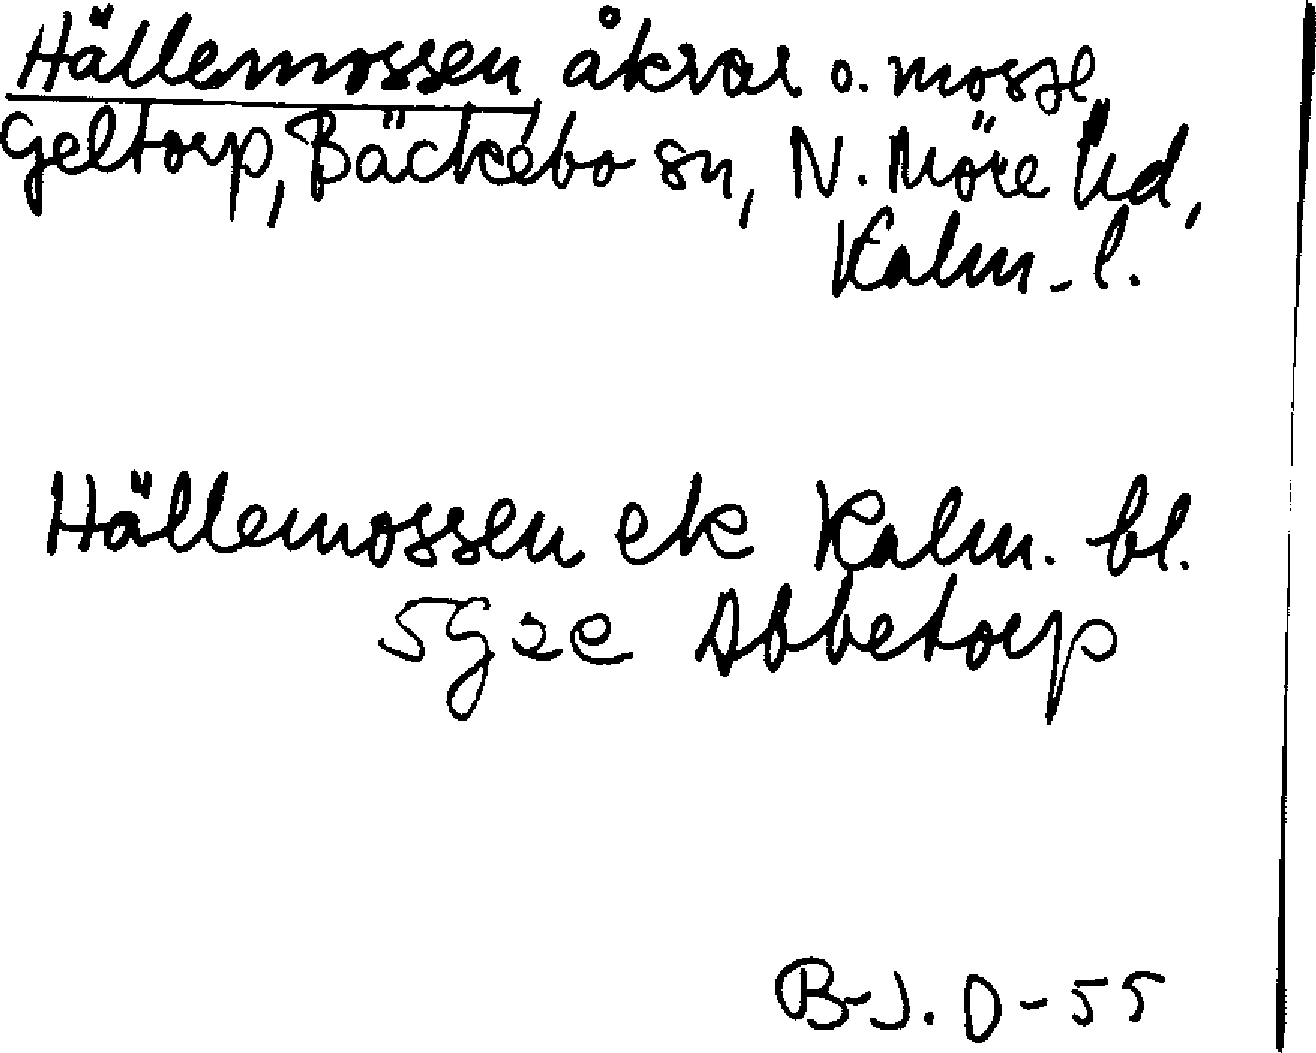 Hällemossen åkrar o. mosse
Geltorp, Bäckebo sn, N. Möre hd,
Kalm. l.
Hällemossen ek Kalm. bl.
5G2e Abbetorp
B-J. D-55